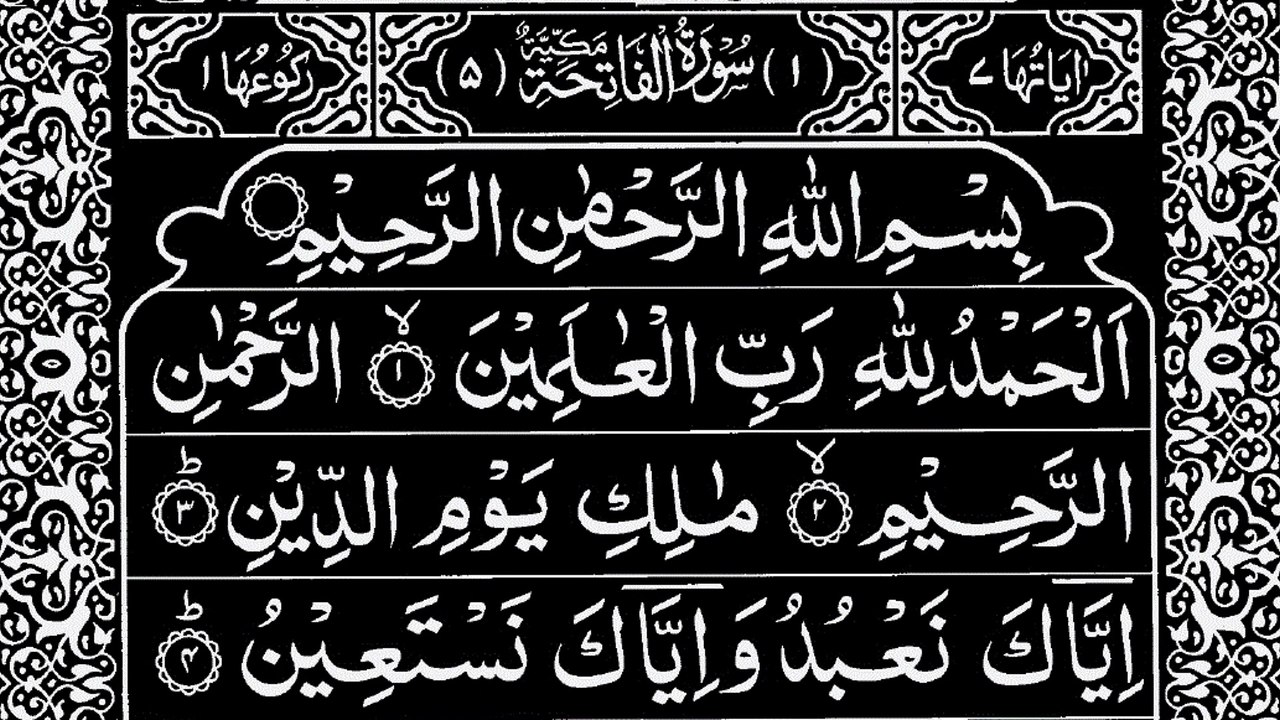 اٰيَاتُهَا ۷ (۱) سُوْرَةُ الْفَاتِحَةِ مَكِّيَّةٌ (۵) رُكُوْعُهَا ۱
بِسْمِ اللّٰهِ الرَّحْمٰنِ الرَّحِيْمِ
اَلْحَمْدُ لِلّٰهِ رَبِّ الْعٰلَمِيْنَ ۙ﴿۱﴾ الرَّحْمٰنِ
الرَّحِيْمِ ۙ﴿۲﴾ مٰلِكِ يَوْمِ الدِّيْنِ ؕ﴿۳﴾
اِيَّاكَ نَعْبُدُ وَ اِيَّاكَ نَسْتَعِيْنُ ؕ﴿۴﴾